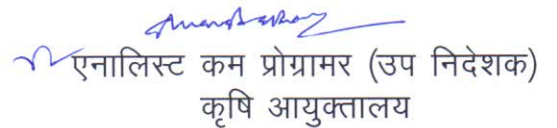 एनालिस्ट कम प्रोग्रामर (उप निदेशक)
कृषि आयुक्तालय